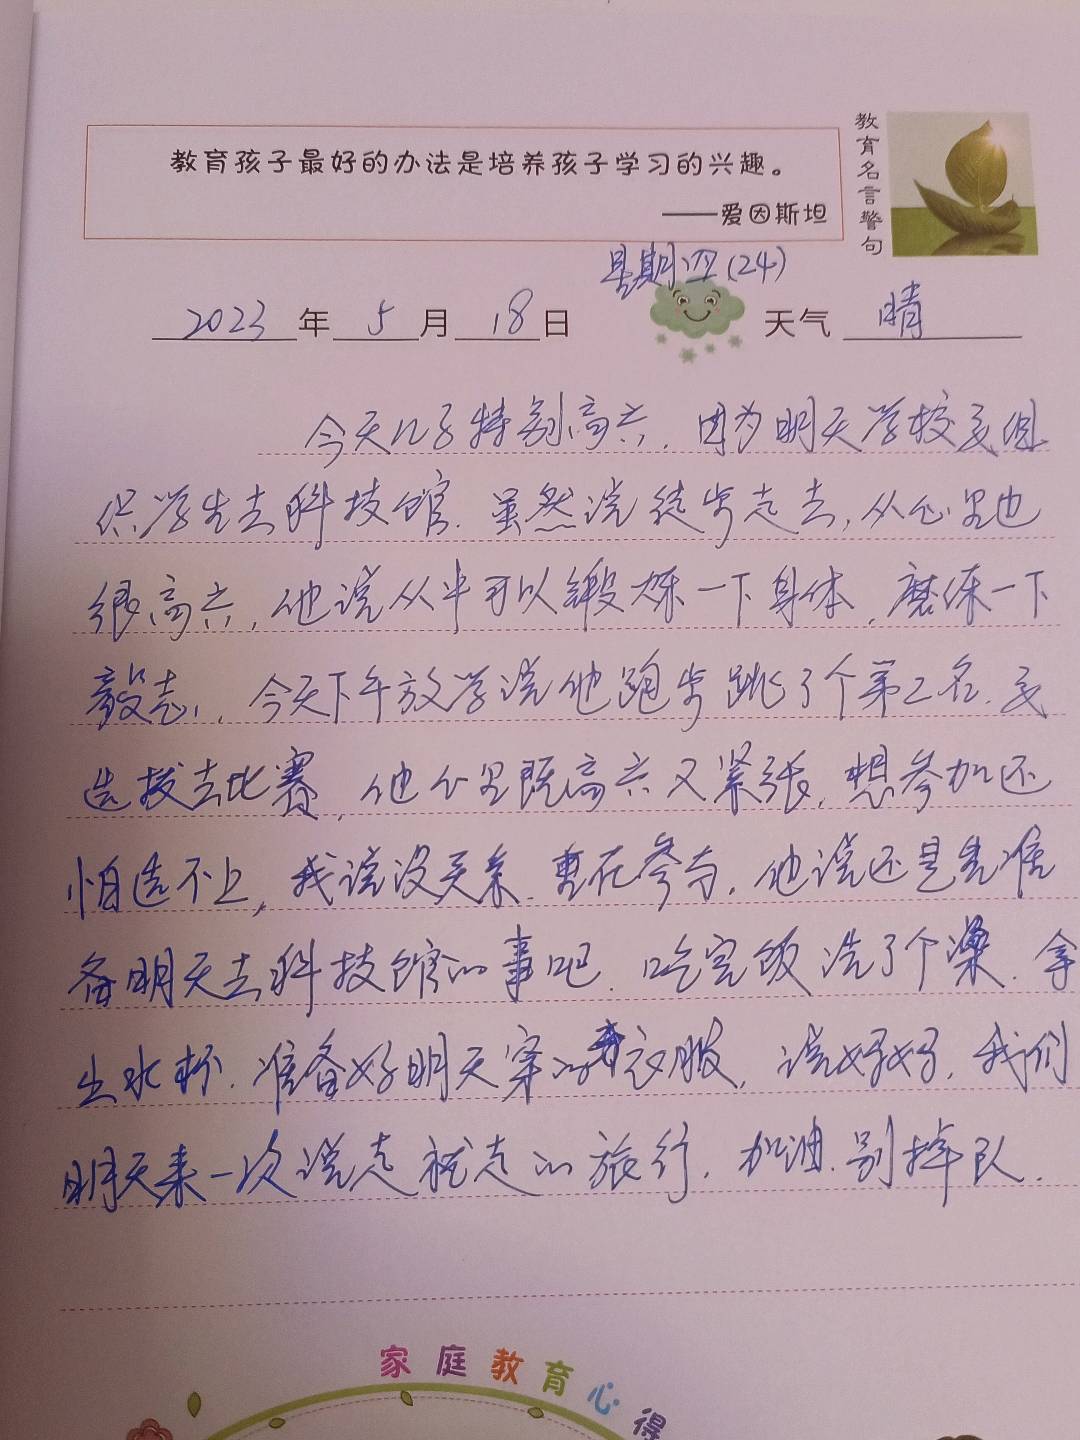 教育孩子最好的办法是培养孩子学习的兴趣。
——爱因斯坦
教育名言警句
星期四(24)
2023年5月18日 天气 晴
今天儿子特别高兴.因为明天学校要组
织学生去科技馆.虽然说徒步走去,从心里也
很高兴,他说从中可以锻炼一下身体,磨练一下
毅志,今天下午放学说他跑步跳了个第2名.要
选拔去比赛,他心里既高兴又紧张,想参加还
怕选不上,我说没关系.重在参与,他说还是先准
备明天去科技馆的事吧.吃完饭洗了个澡.拿
上水杯.准备好明天穿的衣服,说好好,我们
明天来一次说走就走的旅行.加油.别掉队.
家庭教育心得